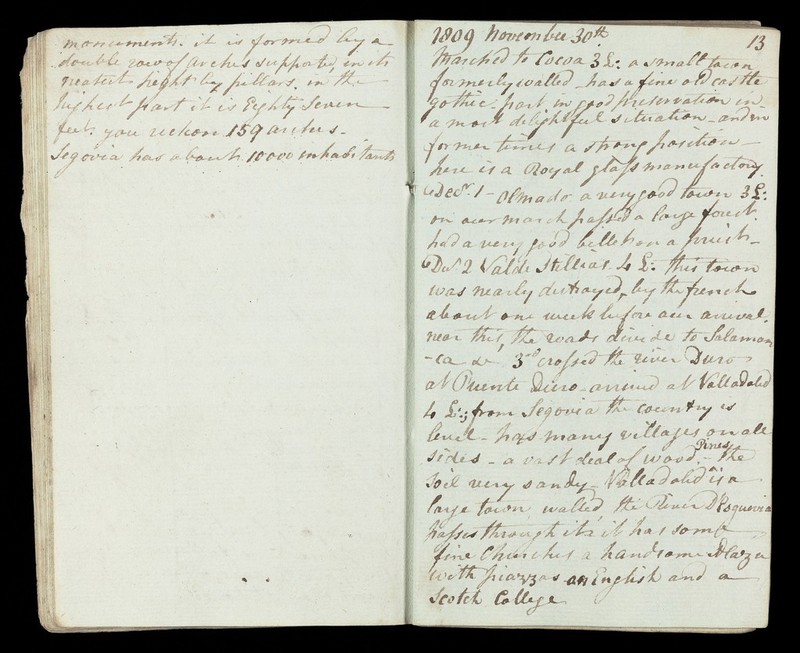 monuments. it is formed by a
double row of arches supported, in its
neatest height by pillars. in the
highest part it is Eighty Seven
feet. you reckon 159 arches -
Segovia has about 10000 inhabitants
1809 November 30th 13
Marched to Cocoa 3 L: a small town
formerly walled - has a fine old castle
gothic. part in good preservation in
a most delightful situation - and in
former times a strong position -
here is a Royal glass manufactory.
Decr. 1 - Olmado a very good town 3 L:
on our march passed a large forest.
had a very good billet on a priest -
Dec. 2 Valde Stillias 4 L: this town
was nearly destroyed, by the french
about one week before our arrival.
near this, the roads divide to Salaman
-ca &c 3rd crossed the river Duro
at Puente Duro - arrived at Valladolid
4 L:; from Segovia the country is
level - has many villages on all
sides - a vast deal of wood, Pines - the
soil very sandy - Valladolid is a
large town walled the River D'Esquevia
passes through it; it has some
fine Churches a handsome Plaza
with piazzas an English and a
Scotch College